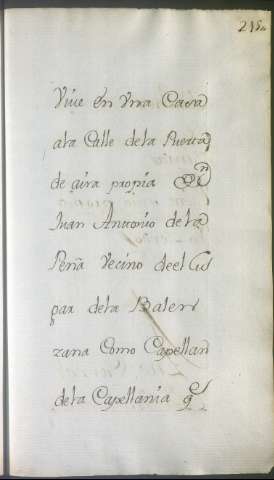 Vive en Vna Cassa
ala Calle de la Puerta
de aira propia Dn
Juan Antonio de la
Peña Vecino de el Gas
par de la Balen
zana Como Capellan
de la Capellania q